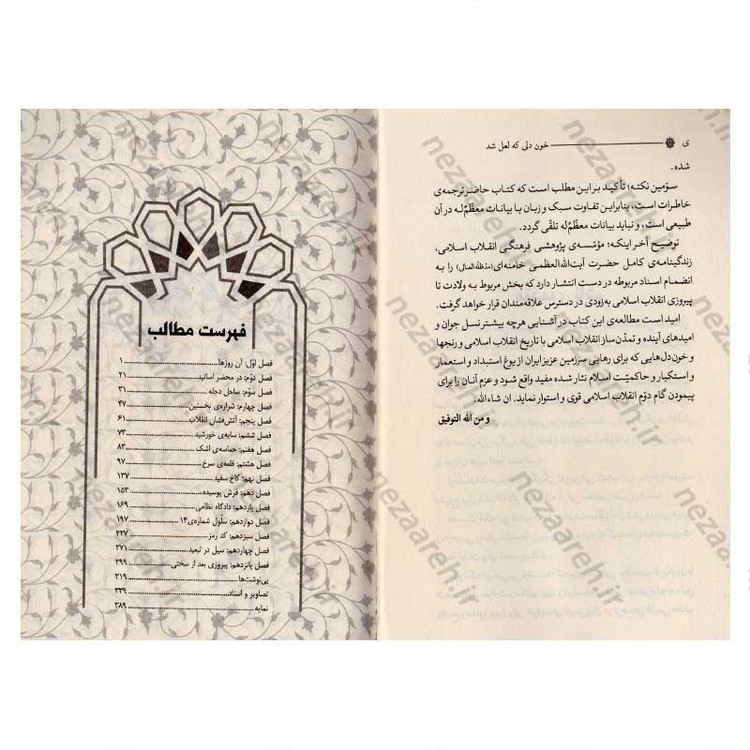 ی
خون دلی که لعل شد
شده.
سوّمین نکته؛ تأکید بر این مطلب است که کتاب حاضر ترجمه‌ی
خاطرات است، بنابراین تفاوت سبک و زبان با بیانات معظّمٌ‌له در آن
طبیعی است، و نباید بیانات معظّمٌ‌له تلقّی گردد.
توضیح آخر اینکه؛ مؤسّسه‌ی پژوهشی فرهنگی انقلاب اسلامی،
زندگینامه‌ی کامل حضرت آیت‌الله‌العظمی خامنه‌ای (مدّظلّه‌العالی) را به
انضمام اسناد مربوطه در دست انتشار دارد که بخش مربوط به ولادت تا
پیروزی انقلاب اسلامی به‌زودی در دسترس علاقه‌مندان قرار خواهد گرفت.
امید است مطالعه‌ی این کتاب در آشنایی هرچه بیشتر نسل جوان و
امیدهای آینده و تمدّن‌ساز انقلاب اسلامی با تاریخ انقلاب اسلامی و رنجها
و خون‌دل‌هایی که برای رهایی سرزمین عزیز ایران از یوغ استبداد و استعمار
و استکبار و حاکمیّت اسلام نثار شده مفید واقع شود و عزم آنان را برای
پیمودن گام دوّم انقلاب اسلامی قوی و استوار نماید. ان شاءالله.
و من الله التوفیق
فهرست مطالب
فصل اوّل: آن روزها ۱
فصل دوّم: در محضر اساتید ۲۱
فصل سوّم: ساحل دجله ۳۱
فصل چهارم: شراره‌ی نخستین ۴۷
فصل پنجم: آتش‌فشان انقلاب ۶۱
فصل ششم: سایه‌ی خورشید ۷۳
فصل هفتم: حماسه‌ی اشک ۸۳
فصل هشتم: قلعه‌ی سرخ ۹۷
فصل نهم: کاخ سفید ۱۳۷
فصل دهم: فرش پوسیده ۱۵۳
فصل یازدهم: دادگاه نظامی ۱۶۹
فصل دوازدهم: سلّول شماره‌ی ۱۴ ۱۹۷
فصل سیزدهم: کد رمز ۲۳۷
فصل چهاردهم: سیل در تبعید ۲۷۱
فصل پانزدهم: پیروزی بعد از سختی ۲۹۹
پی‌نوشت‌ها ۳۱۹
تصاویر و اسناد ۳۳۹
نمایه ۳۸۹
nezaareh.ir
nezaareh.ir
nezaareh.ir
nezaareh.ir